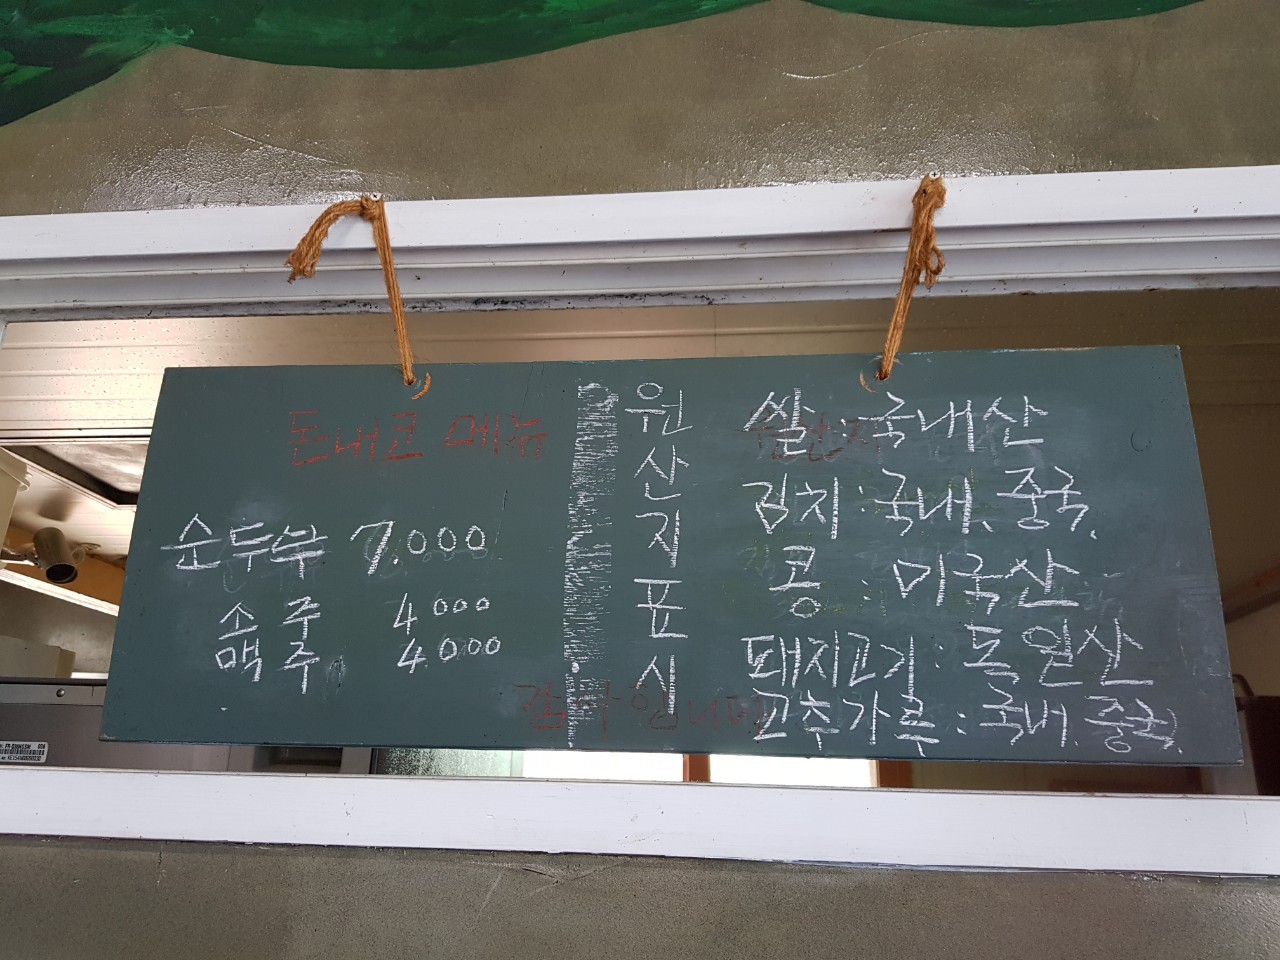 돈내코 메뉴
순두부 7.000
소주 4000
맥주 4000
원산지표시
쌀:국내산
김치:국내、중국、
콩:미국산
돼지고기:독일산
고추가루:국내、중국、